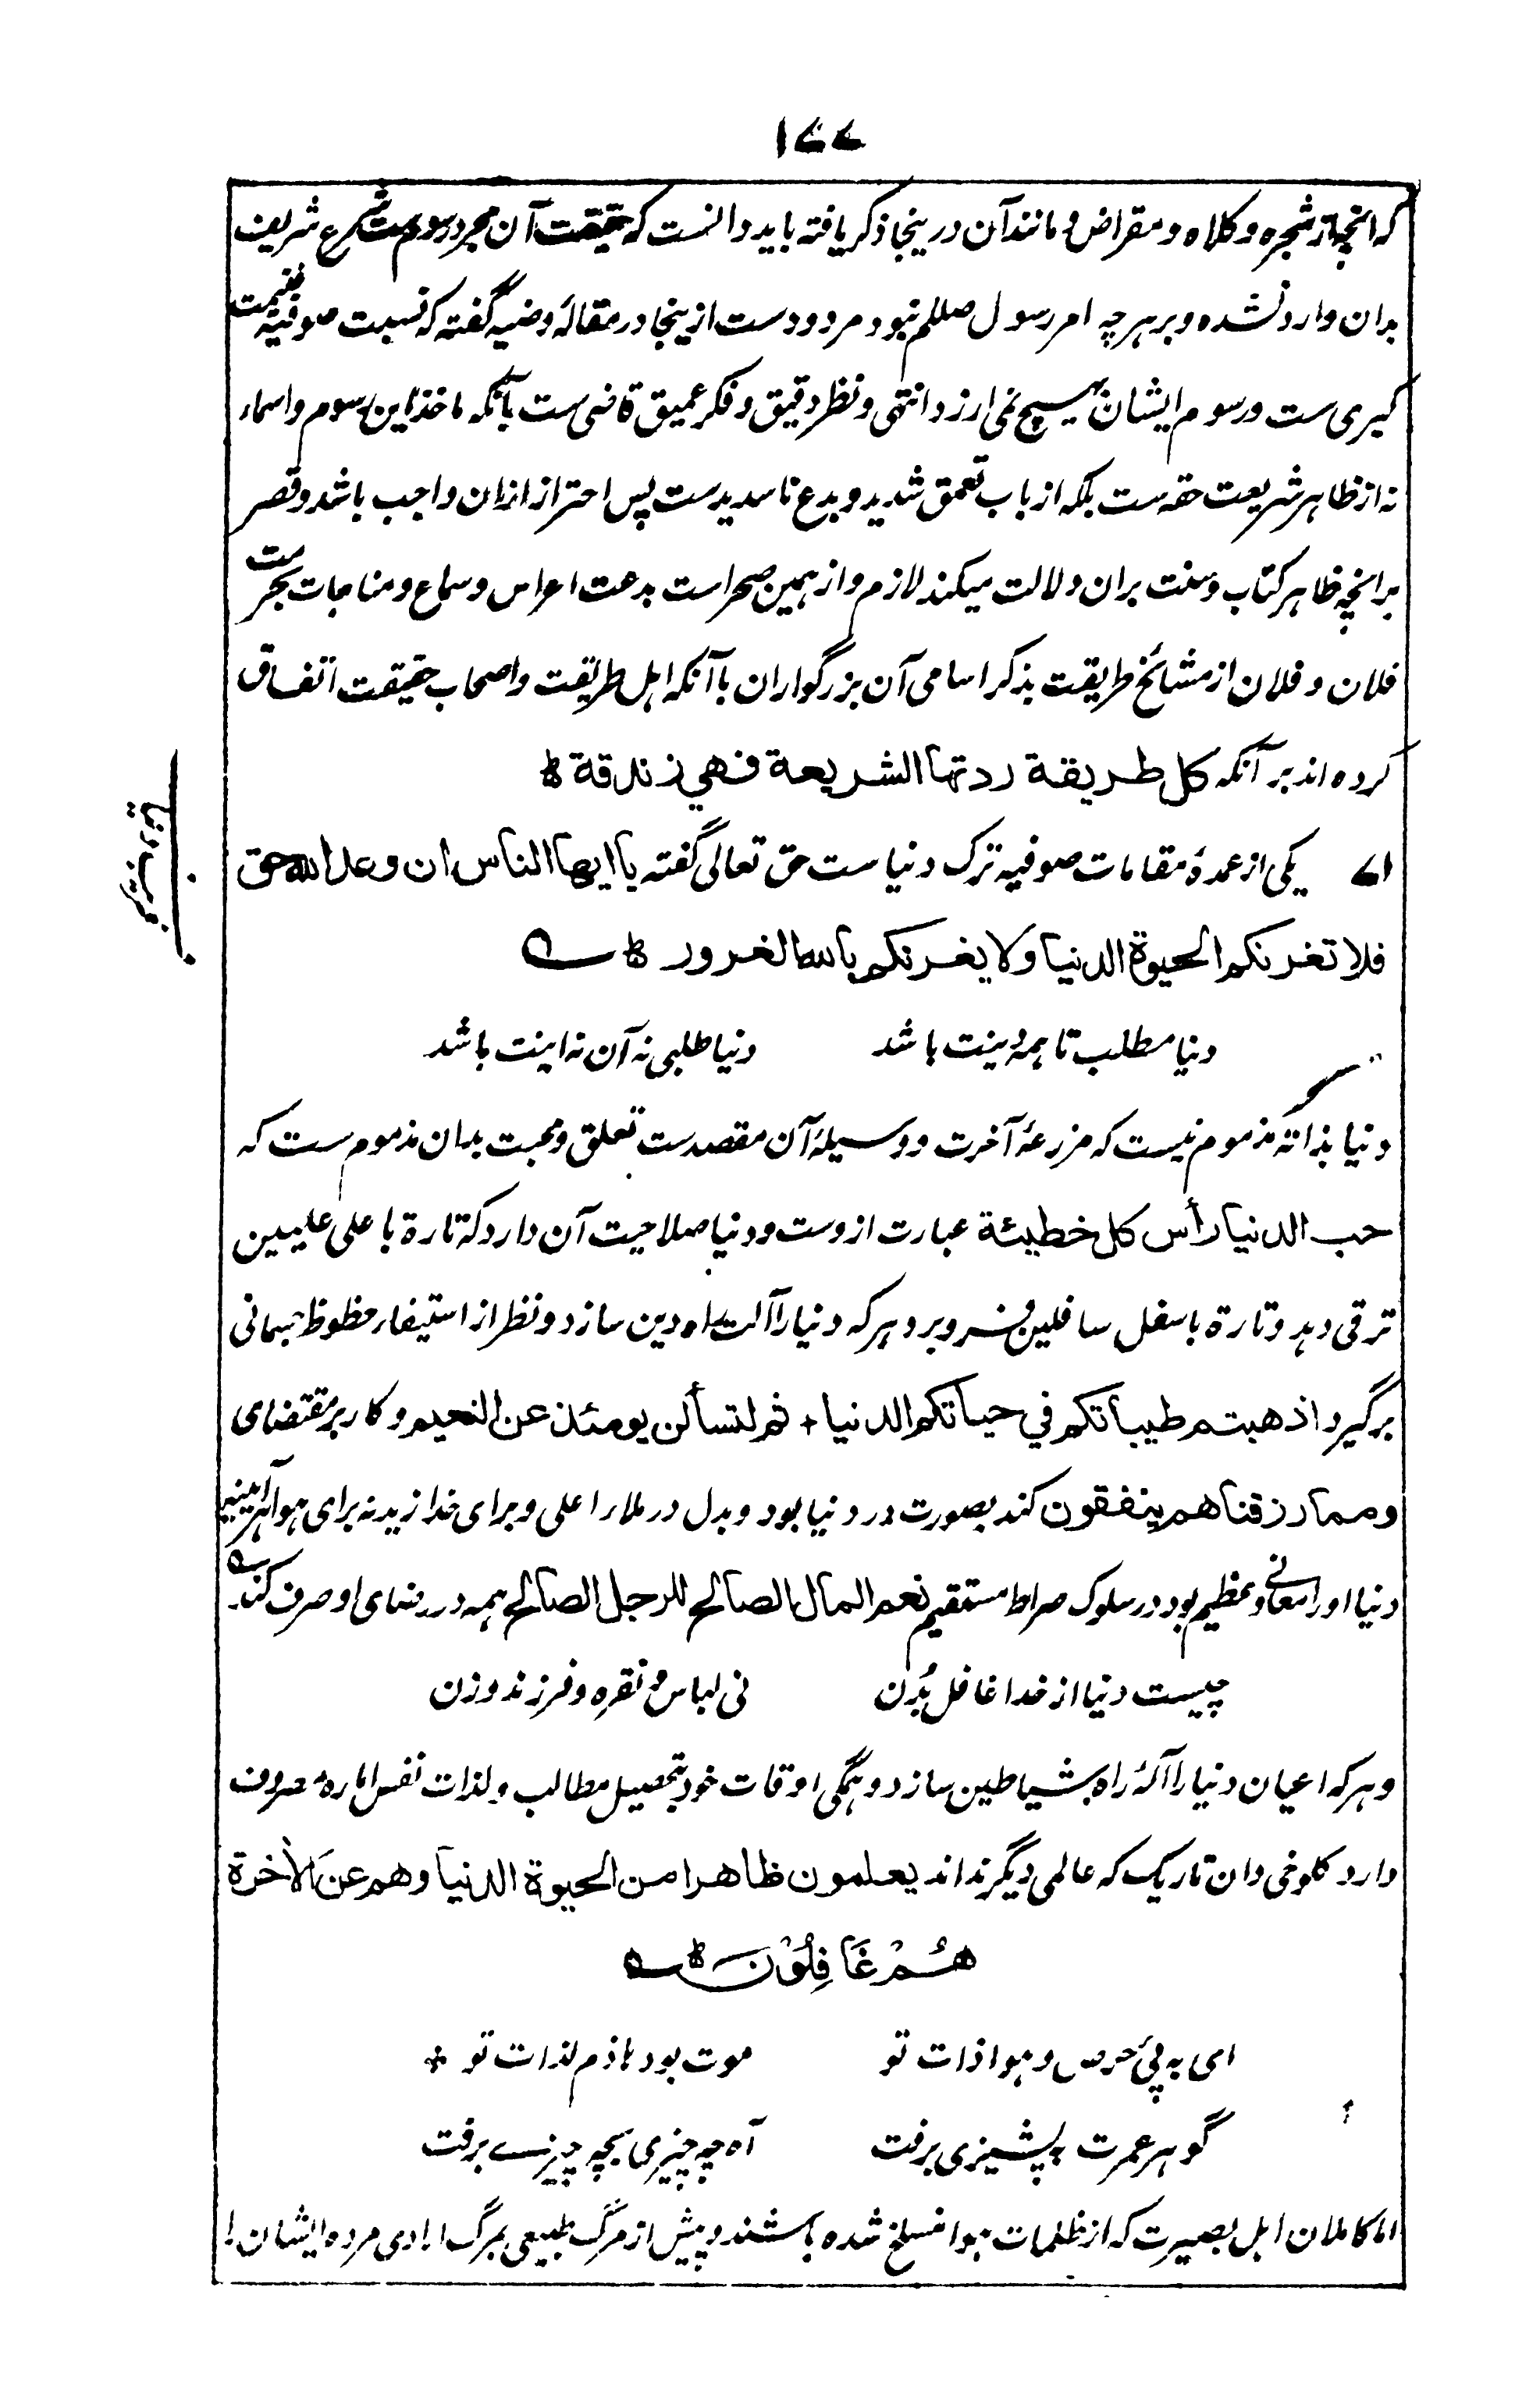 ۱۷۷
که انچه از شجره و کلاه و مقراض و مانند آن درینجا ذکر یافته باید دانست که حقیقت آن مجرد رسوم ست شرع شریف
بدان وارد نشده و بر هر چه امر رسول صللم نبود مردودست ازینجا در مقالهٔ وضیه گفته که نسبت صوفیه غنیمت
کبری ست و رسوم ایشان هیچ نمی ارزد انتهی و نظر دقیق و فکر عمیق قاضی ست بآنکه ماخذ این رسوم و اسماء
نه از ظاهر شریعت حقه ست بلکه از باب تعمق شدید و بدع ناسدیدست پس احتراز ازان واجب باشد و قصر
برانچه ظاهر کتاب و سنت بران دلالت میکند لازم و از همین صحراست بدعت اعراس و سماع و مناجات بحرمت
فلان و فلان از مشائخ طریقت بذکر اسامی آن بزرگواران با آنکه اهل طریقت و اصحاب حقیقت اتفاق
کرده اند بر آنکه کل طریقة ردتها الشریعة فهی زندقة ط
۷۱ یکی از عمدهٔ مقامات صوفیه ترک دنیاست حق تعالی گفته یا ایها الناس ان وعد الله حق
فلا تغرنکم الحیوة الدنیا ولا یغرنکم بالله الغرور ط ے
دنیا مطلب تا همه دینت باشد دنیا طلبی نه آن نه اینت باشد
دنیا بذاته مذموم نیست که مزرعهٔ آخرت و وسیلهٔ آن مقصدست تعلق و محبت بدان مذموم ست که
حب الدنیا رأس کل خطیئة عبارت ازوست و دنیا صلاحیت آن دارد که تارة باعلی علیین
ترقی دهد و تارة باسفل سافلین فرو برد هر که دنیا را آلت راه دین سازد و نظر از استیفاء حظوظ جسمانی
برگیرد اذهبتم طیباتکم فی حیاتکم الدنیا + ثم لتسألن یومئذ عن النعیم و کار بر مقتضای
ومما رزقناهم ینفقون کند بصورت در دنیا بود و بدل در ملاء اعلی و برای خدا زید نه برای هوا هرآینه
دنیا او را معاونی عظیم بود در سلوک صراط مستقیم نعم المال الصالح للرجل الصالح همه در رضای او صرف کند ے
چیست دنیا از خدا غافل بُدن نی لباس و نقره و فرزند و زن
و هر که اعیان دنیا را آلهٔ راه شیاطین سازد و همگی اوقات خود بتحصیل مطالب و لذات نفس اماره مصروف
دارد کلوخی دان تاریک که عالمی دیگر نداند یعلمون ظاهرا من الحیوة الدنیا وهم عن الاخرة
هُمْ غَافِلُوْنَ ط ے
ای به پئ حرص و هوا ذات تو موت بود هاذم لذات تو *
گوهر عمرت به پشیزی برفت آه چه چیزی بچه چیزے برفت
اما کاملان اهل بصیرت که از ظلمات هوا منسلخ شده باشند و پیش از مرگ طبیعی بمرگ ارادی مرده ایشان را